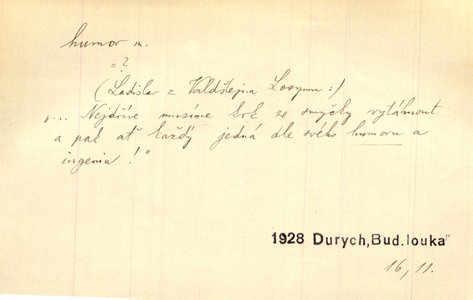 humor m.
= ?
(Ladislav z Valdštejna Losymu:)
„... Nejdříve musíme krk ze smyčky vytáhnout
a pak ať každý jedná dle svého humoru a
ingenia!"
1928 Durych,„Bud.louka"
16, 11.